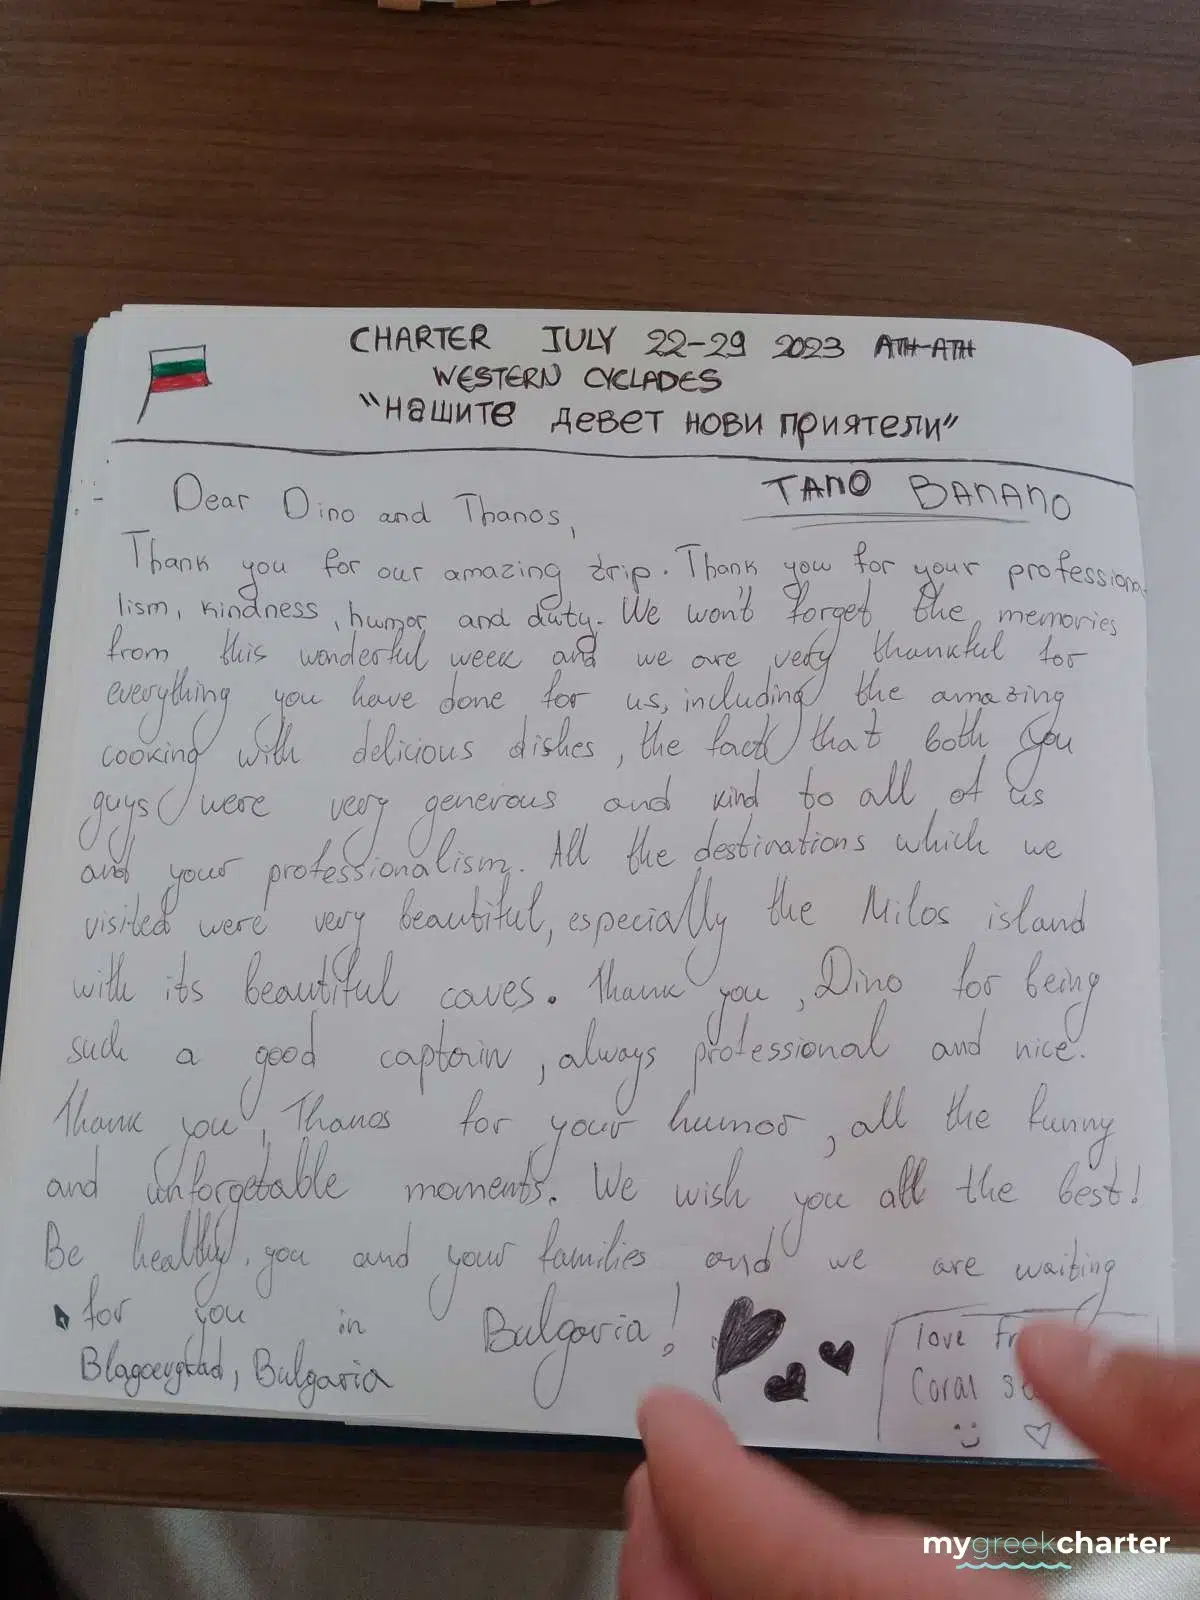 CHARTER JULY 22-29 2023 ATH-ATH
WESTERN CYCLADES
"нашите девет нови приятели"
TANO BANANO
Dear Dino and Thanos,
Thank you for our amazing trip. Thank you for your professiona-
lism, kindness, humor and duty. We won't forget the memories
from this wonderful week and we are very thankful for
everything you have done for us, including the amazing
cooking with delicious dishes, the fact that both you
guys were very generous and kind to all of us
and your professionalism. All the destinations which we
visited were very beautiful, especially the Milos island
with its beautiful caves. Thank you, Dino for being
such a good captain, always professional and nice.
Thank you, Thanos for your humor, all the funny
and unforgetable moments. We wish you all the best!
Be healthy, you and your families and we are waiting
for you in Bulgaria!
Blagoevgrad, Bulgaria
love
Coral
mygreekcharter